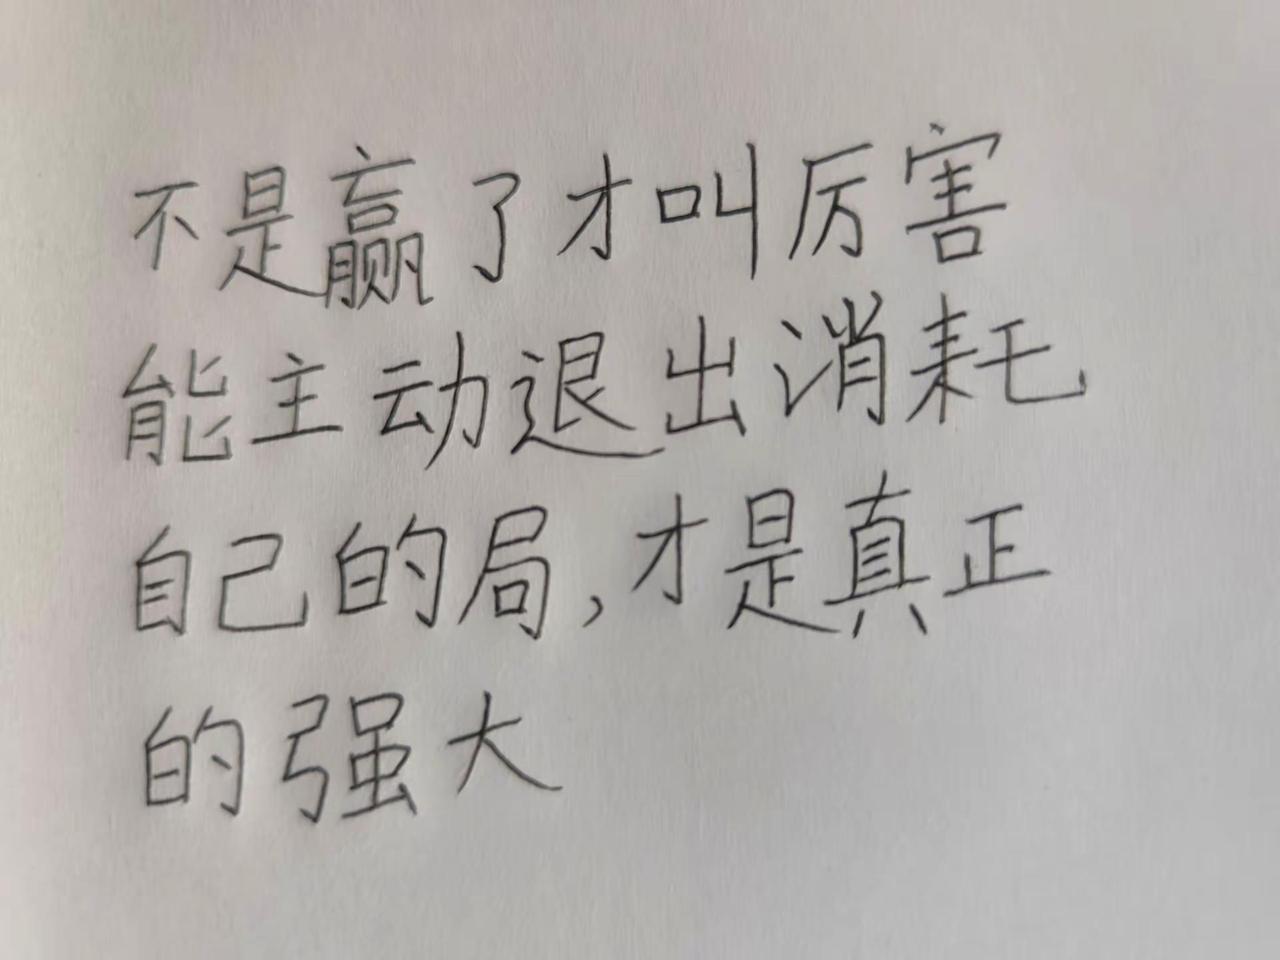 不是赢了才叫厉害
能主动退出消耗
自己的局,才是真正
的强大